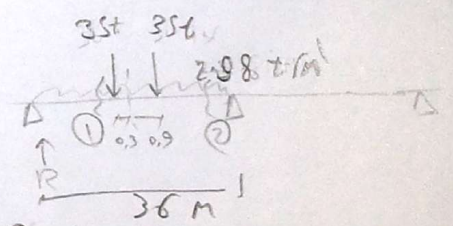 35t 35t
2.98 t/m'
① 0,3 0,9 ②
R
36 m